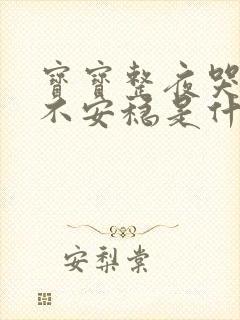 寶寶整夜哭
不安穩是什
安梨棠